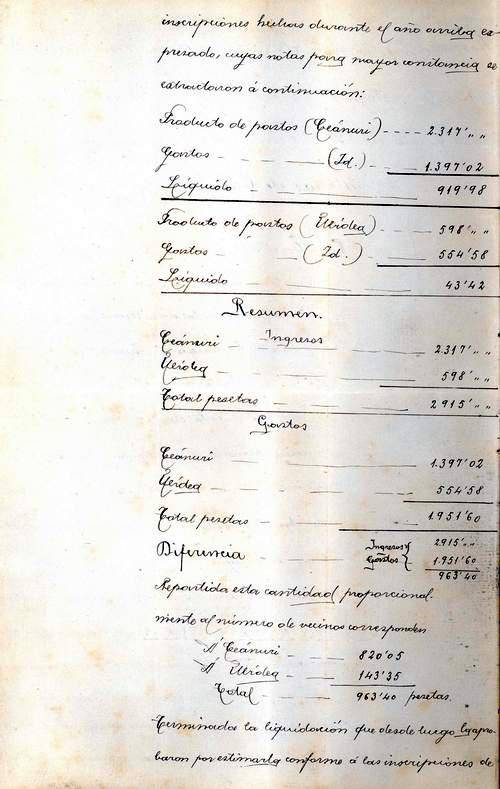 inscripciones hechas durante el año arriba ex-
presado, cuyas notas para mayor constancia se
extractaron á continuación:
Producto de pastos (Ceánuri) ---- 2.317' „ „
Gastos - - - (Id.) - - 1.397'02
Líquido - - - 919'98
Producto de pastos (Ubidea) - - 598' „ „
Gastos - - - (Id.) - - 554'58
Líquido - - - 43'42
Resumen.
Ingresos
Ceánuri - - - 2.317' „ „
Ubidea - - - 598' „ „
Total pesetas - - - 2915' „ „
Gastos
Ceánuri - - - 1.397'02
Ubidea - - - 554'58
Total pesetas - - - 1951'60
Diferencia - - Ingresos } 2915' „ „
Gastos } 1.951'60
963'40
Repartida esta cantidad proporcional
mente al número de vecinos corresponden
A Ceánuri - - 820'05
A Ubidea - - 143'35
Total - - 963'40 pesetas.
Terminada la liquidación que desde luego la apro-
baron por estimarla conforme á las inscripciones de